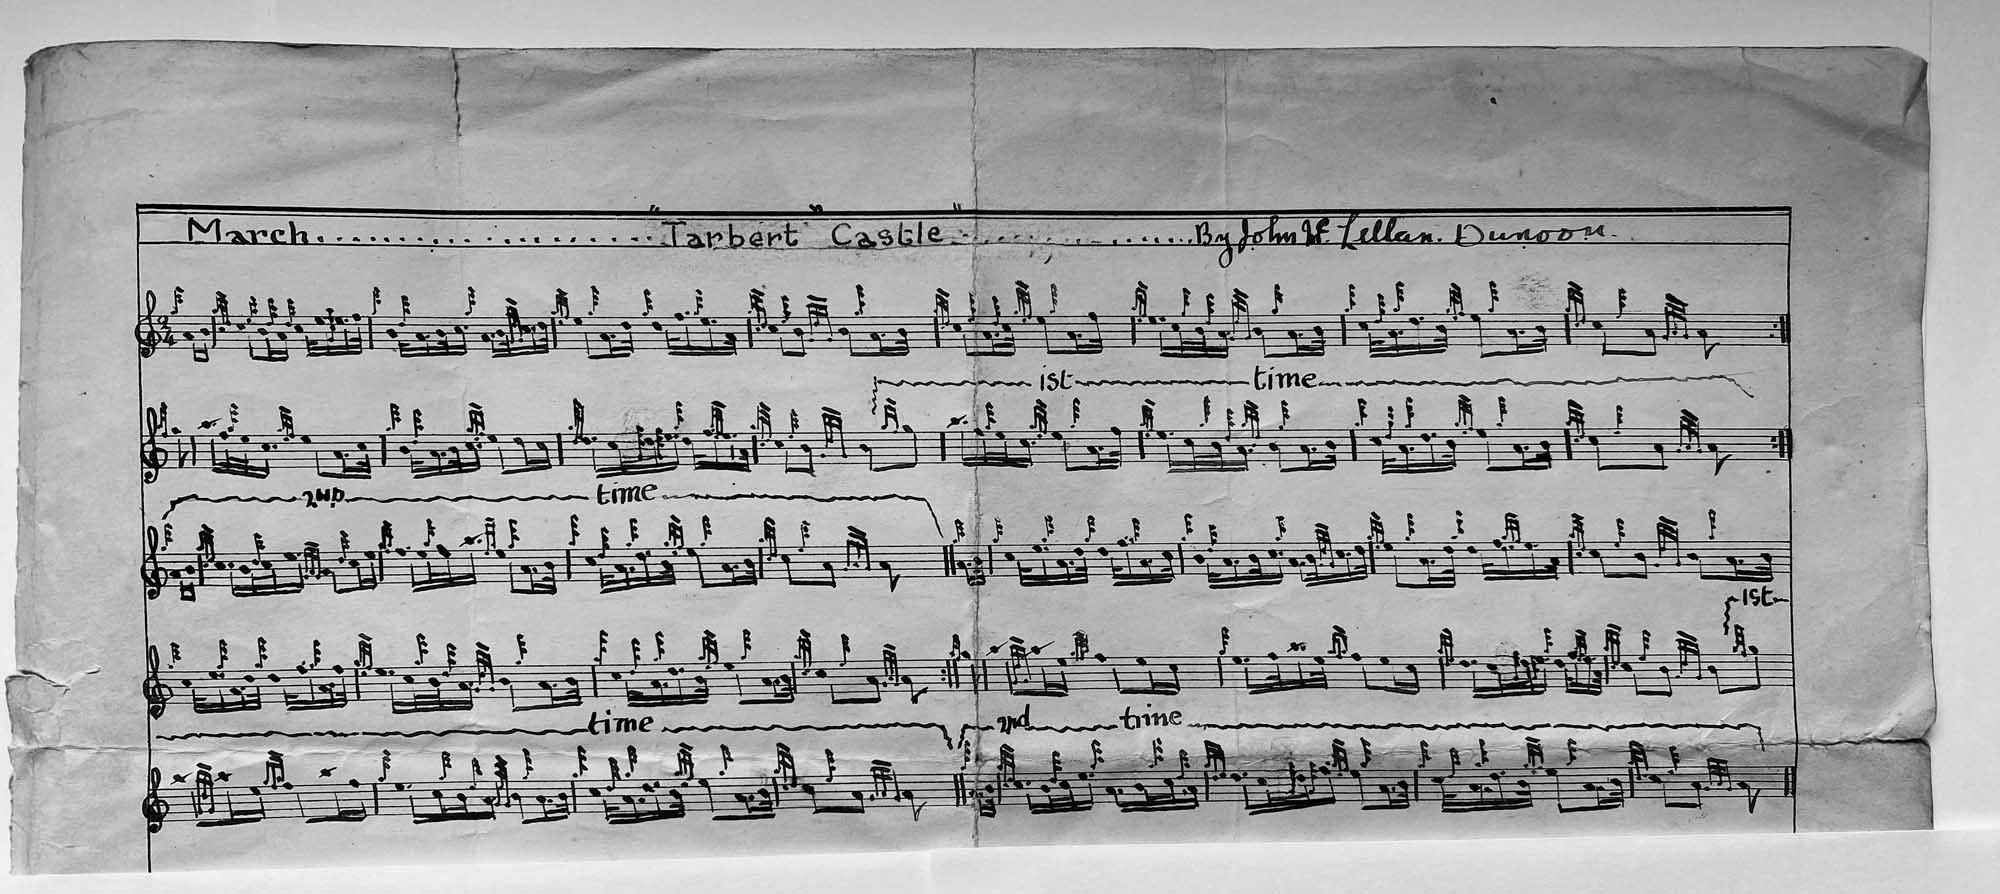 March.................."Tarbert" Castle"............By John Mc Lellan. Dunoon.
2/4
1st time
2ND time
1st
time 2nd time